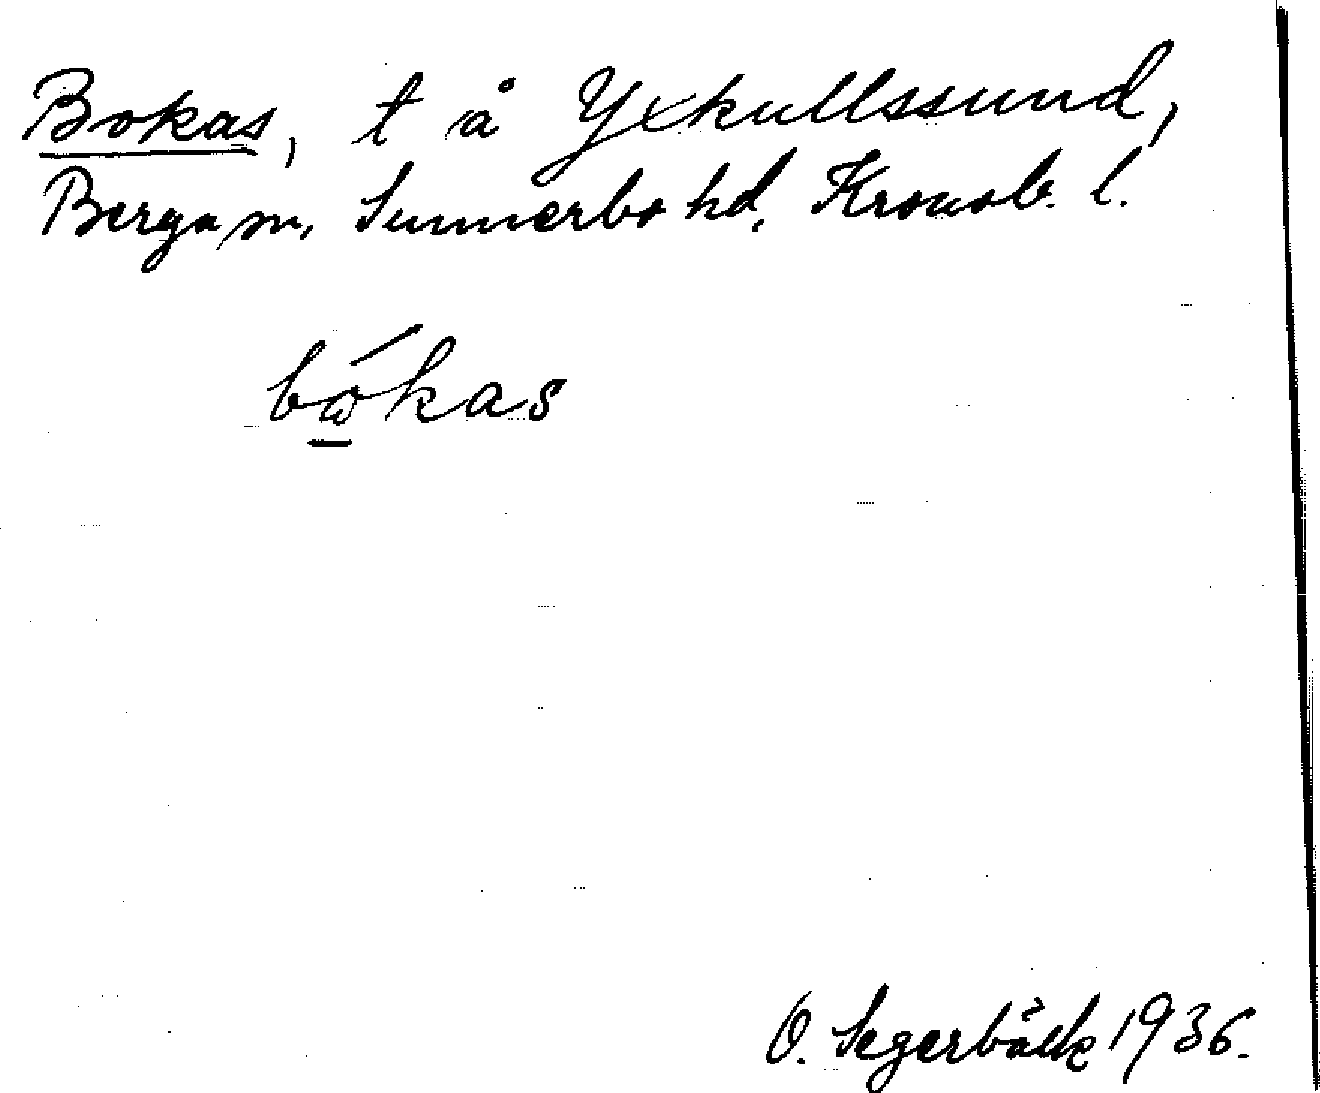 Bokas, t å Yxkullssund,
Berga sn, Sunnerbo hd, Kronob. l.
bώ̲kas
O. Segerbäck 1936.